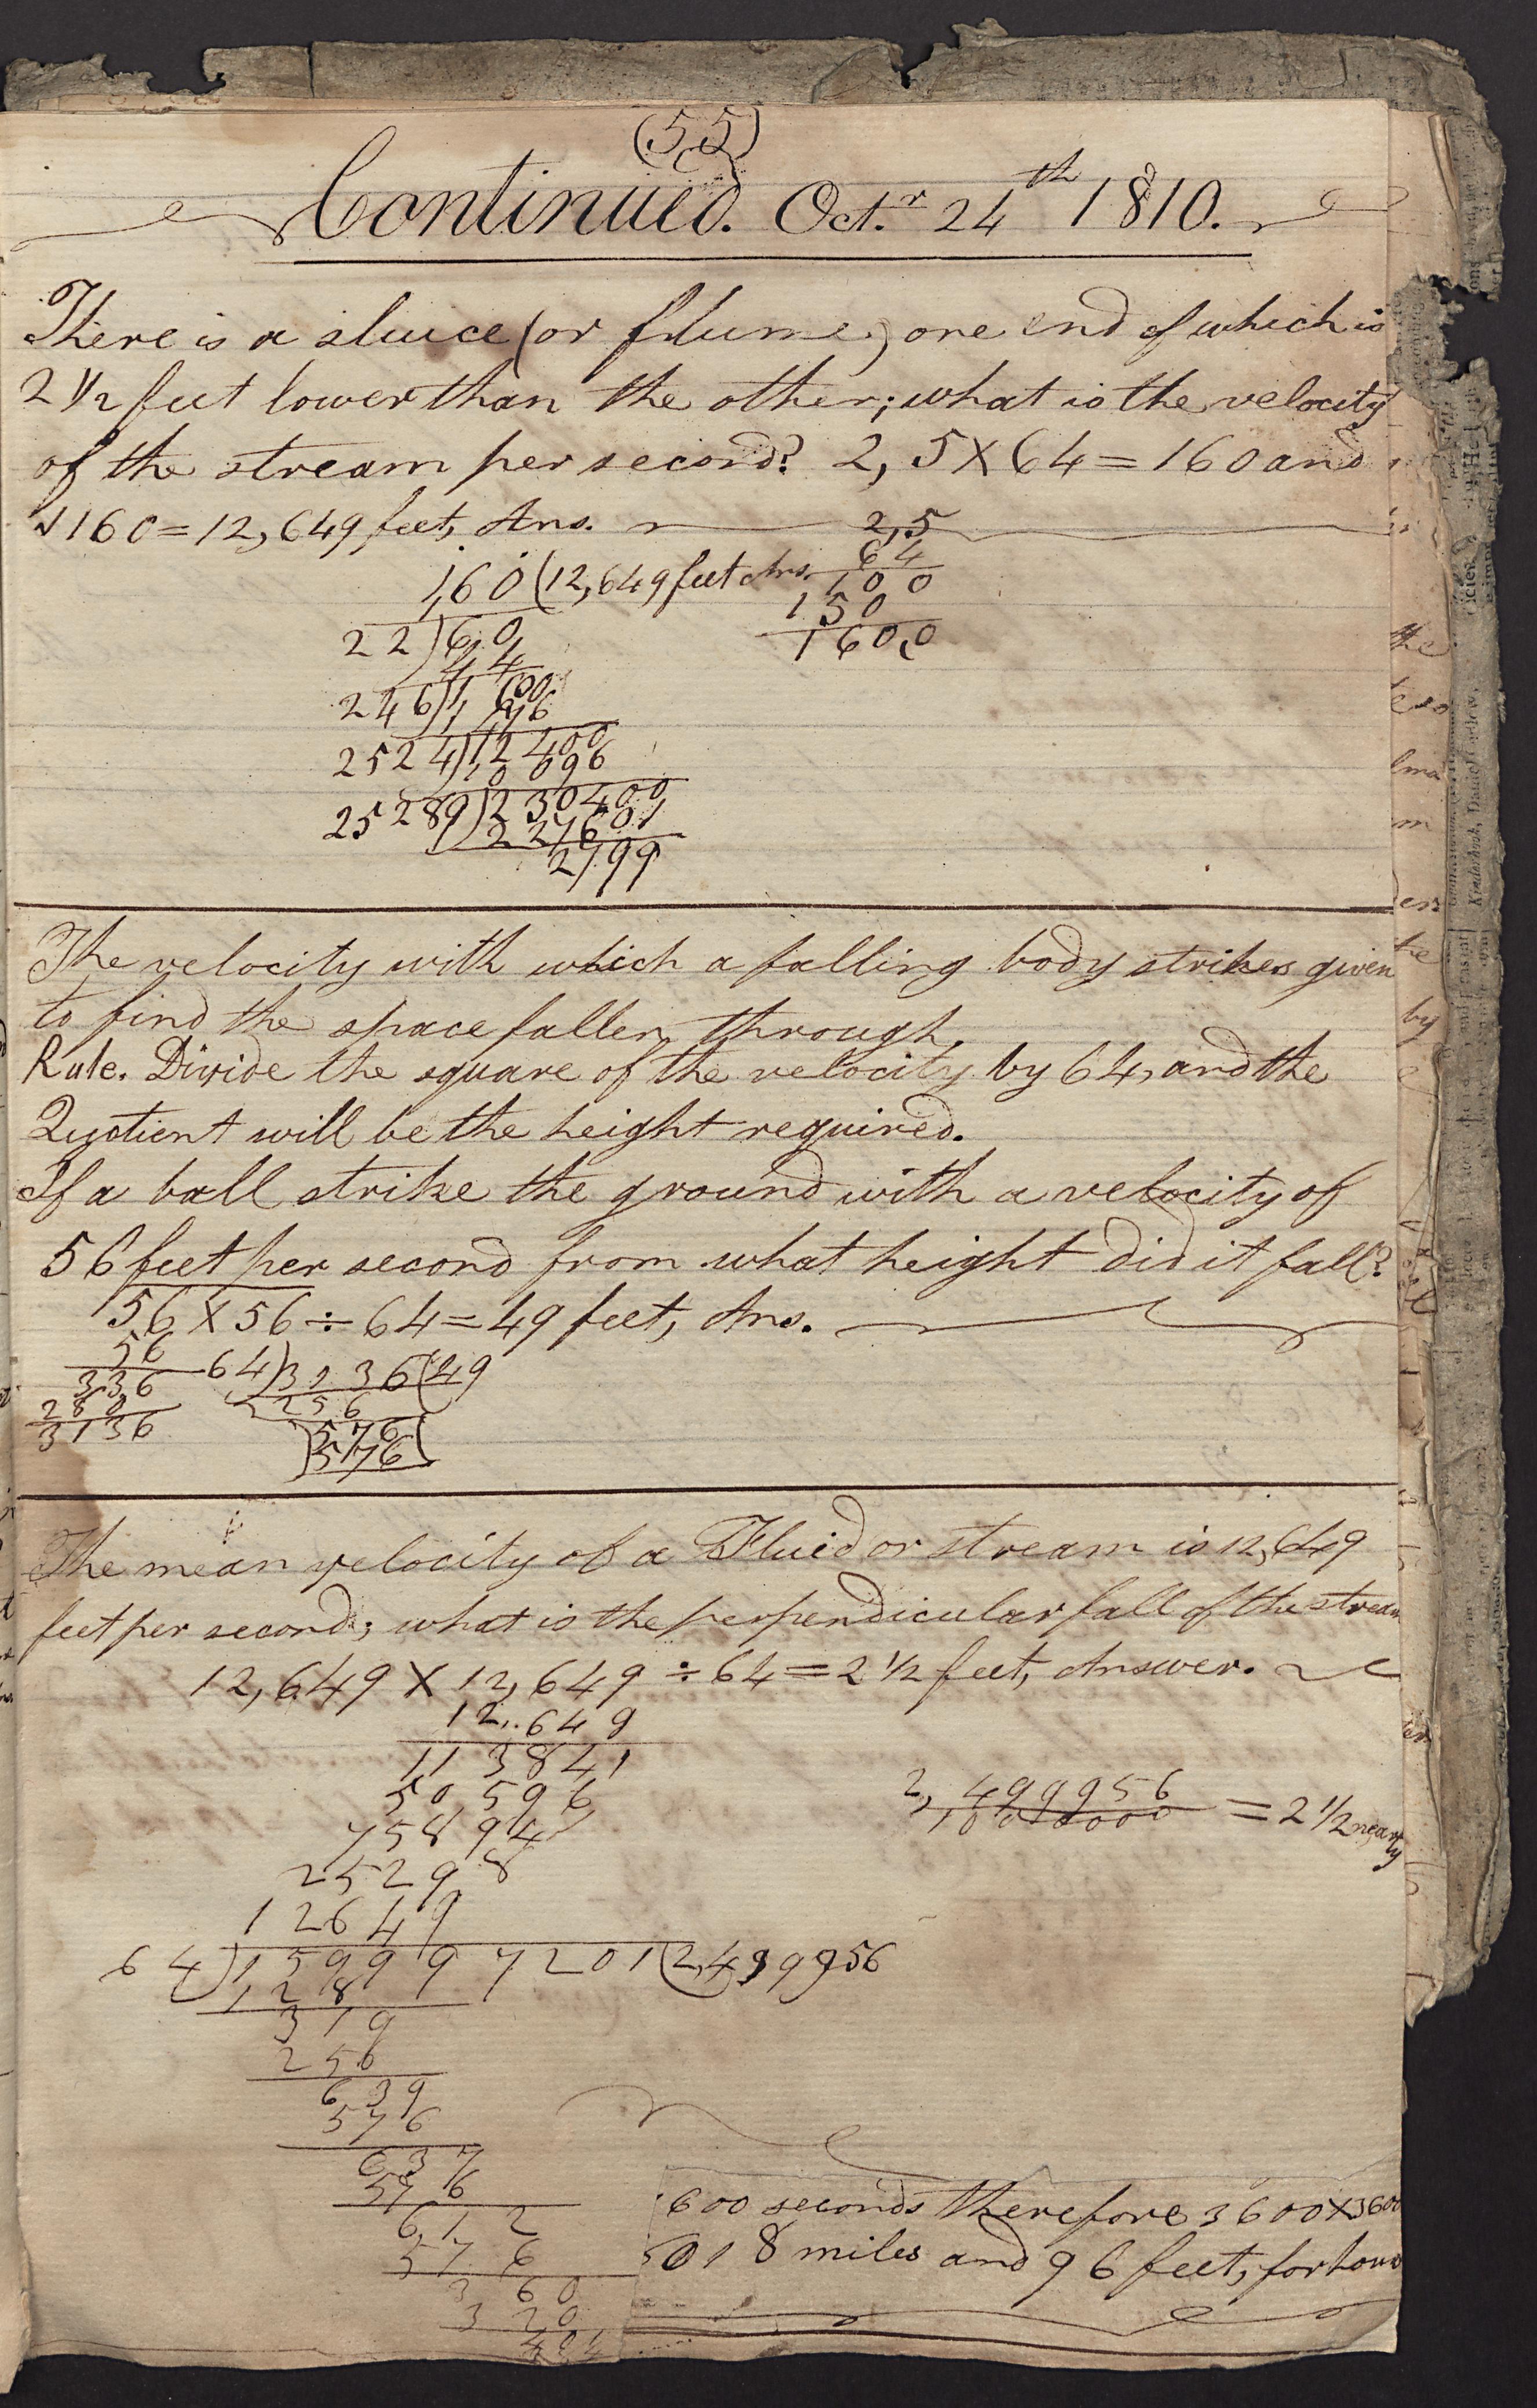 (55)
Continued. Oct.r 24th 1810.
There is a sluice (or flume) one end of which is
2 1/2 feet lower than the other; what is the velocity
of the stream per second? 2,5 X 64 = 160 and
√160 = 12,649 feet, Ans.
2,5
64
100
150
160,0
160 (12,649 feet Ans.
1
22) 60
44
246) 1600
1476
2524) 12400
10096
25289) 230400
227601
2799
The velocity with which a falling body strikes given
to find the space fallen through.
Rule. Divide the square of the velocity by 64, and the
Quotient will be the height required.
If a ball strike the ground with a velocity of
56 feet per second from what height did it fall?
56 X 56 ÷ 64 = 49 feet, Ans.
56
336
280
3136
64) 3136 (49
256
576
576
The mean velocity of a Fluid or stream is 12,649
feet per second; what is the perpendicular fall of the stream
12,649 X 12,649 ÷ 64 = 2 1/2 feet, Answer.
12,649
113841
50596
75894
25298
12649
64) 159997201 (2,499956
128
319
256
639
576
637
576
612
576
360
320
401
2,499956
1000000 = 2 1/2 nearly
600 seconds therefore 3600X3600
018 miles and 96 feet, for hour